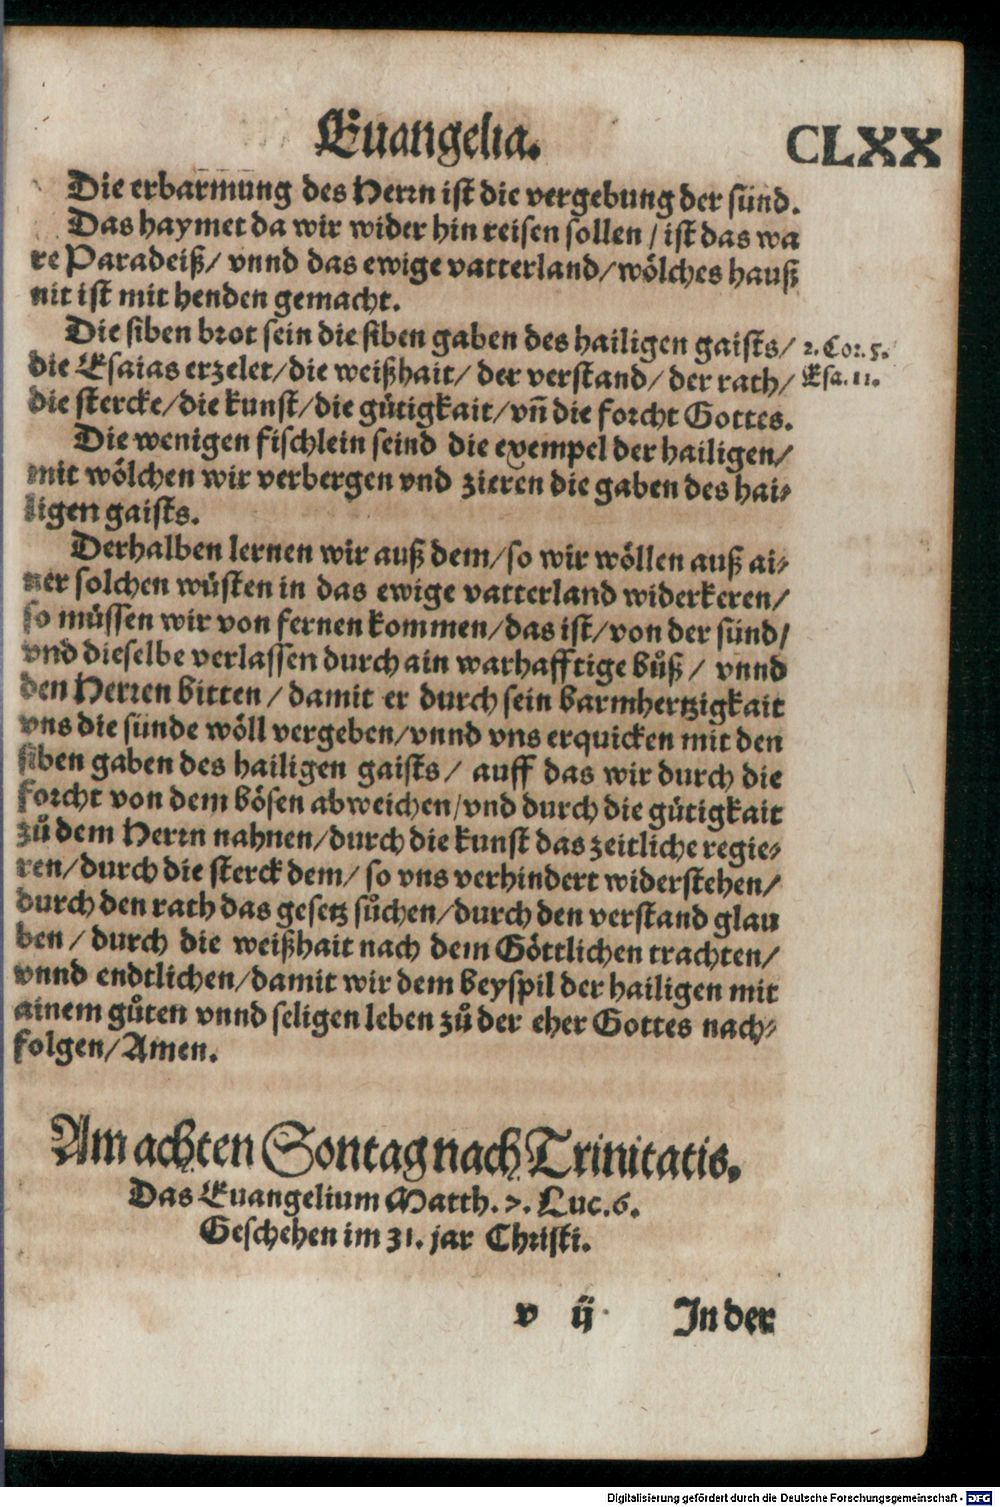 Euangelia.
CLXX
Die erbar̄mūng des Herrn ist die vergebung der sünd.
Das haymet da wir wider hin reisen sollen / ist das wa
re Paradeiß/ vnnd das ewige vatterland/wölches hauß
nit ist mit henden gemacht.
Die siben brot sein die siben gaben des hailigen gaists/
2. Cor. 5.
die Esaias erzelet/die weißhait/ der verstand/ der rath/
Esa. 11.
die stercke/die kunst/die gütigkait/vn̄ die forcht Gottes.
Die wenigen fischlein seind die exempel der hailigen/
mit wölchen wir verbergen vnd zieren die gaben des hai⸗
ligen gaists.
Derhalben lernen wir auß dem/so wir wöllen auß ai⸗
ner solchen wüsten in das ewige vatterland widerkeren/
so müssen wir von fernen kommen/das ist/von der sünd/
vnd dieselbe verlassen durch ain warhafftige bůß / vnnd
den Herren bitten / damit er durch sein barmhertzigkait
vns die sünde wöll vergeben/vnnd vns erquicken mit den
siben gaben des hailigen gaists/ auff das wir durch die
forcht von dem bösen abweichen/vnd durch die gütigkait
zů dem Herrn nahnen/durch die kunst das zeitliche regie⸗
ren/durch die sterck dem/ so vns verhindert widerstehen/
durch den rath das gesetz sůchen/durch den verstand glau
ben / durch die weißhait nach dem Göttlichen trachten/
vnnd endtlichen/damit wir dem beyspil der hailigen mit
ainem gůten vnnd seligen leben zů der eher Gottes nach⸗
folgen/Amen.
Am achten Sontag nach Trinitatis.
Das Euangelium Matth. 7. Luc. 6.
Geschehen im 31. jar Christi.
v ij
In der
Digitalisierung gefördert durch die Deutsche Forschungsgemeinschaft - DFG